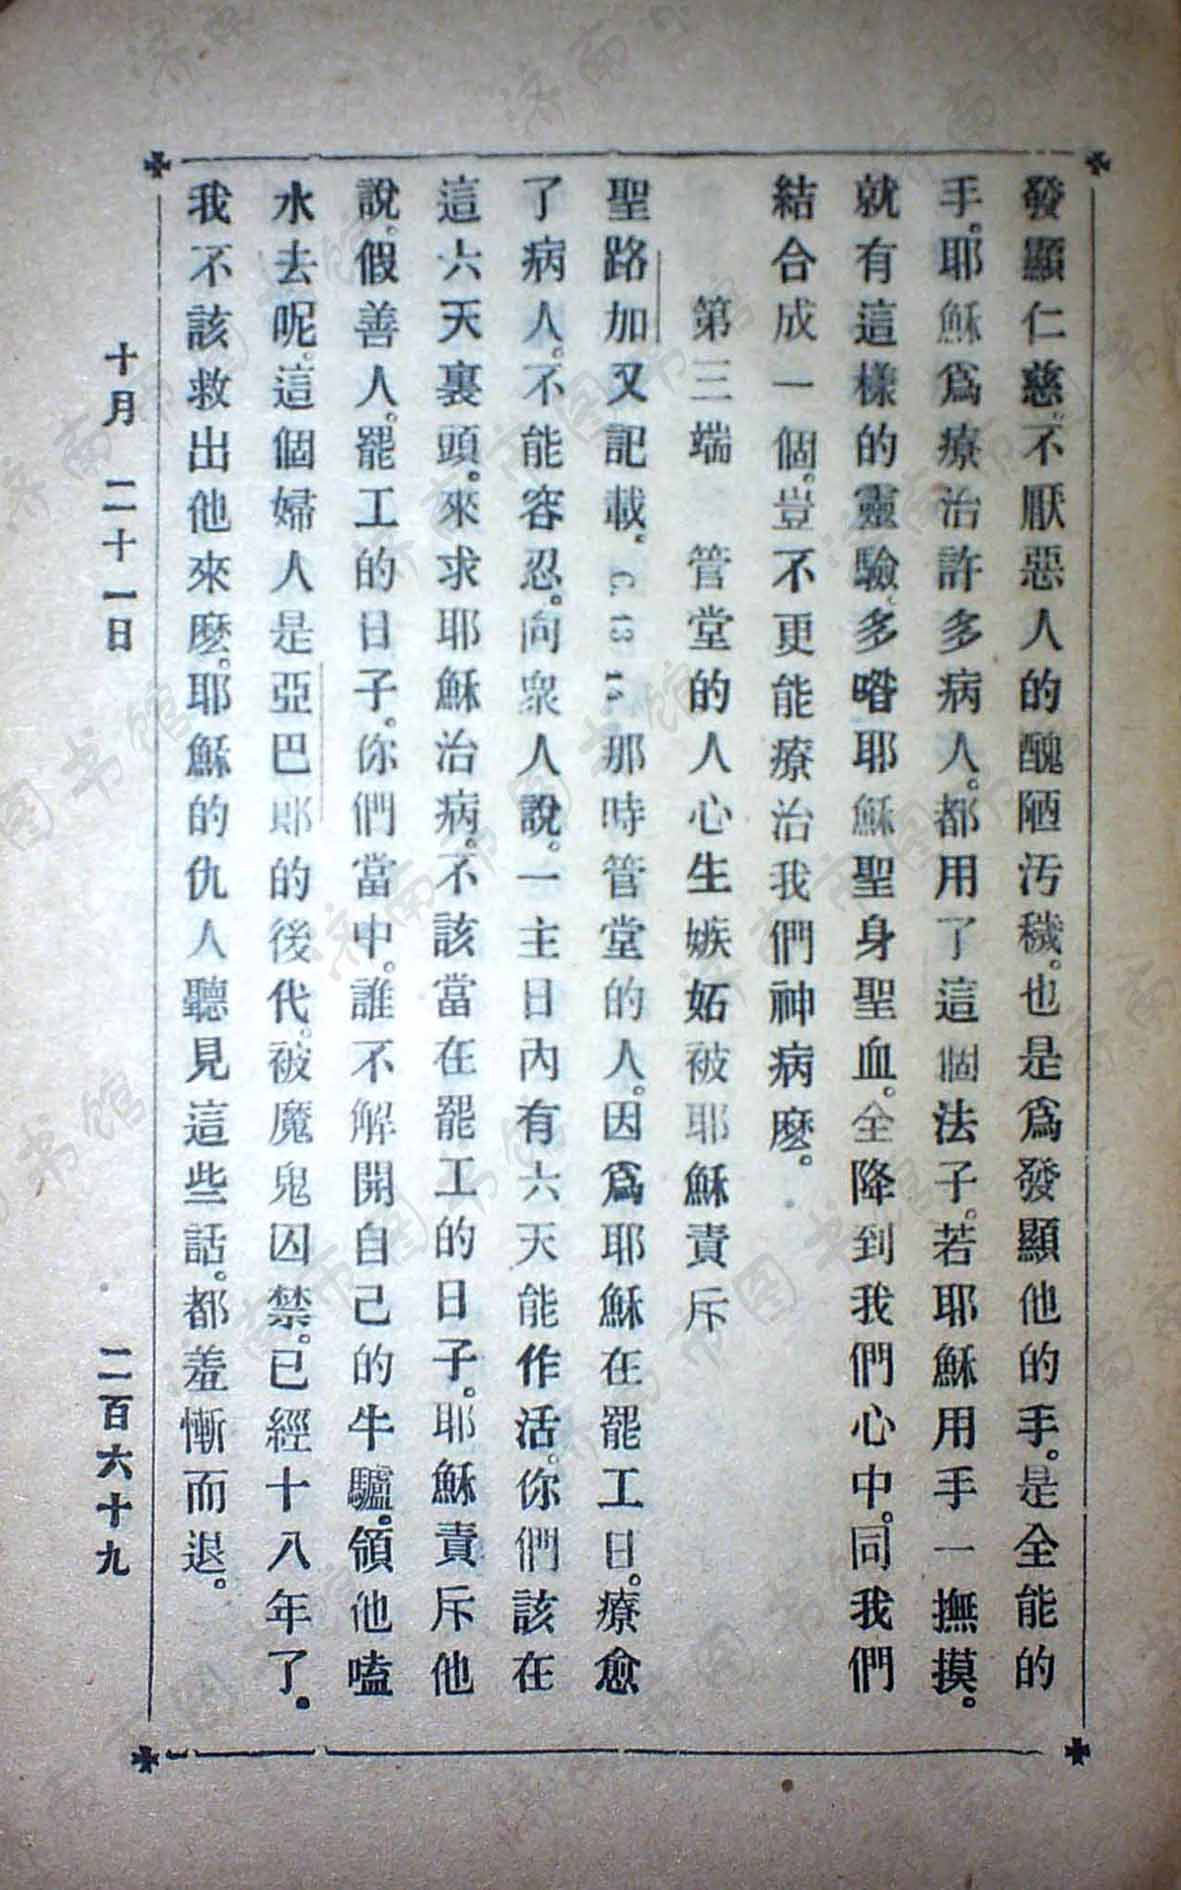 發顯仁慈。不厭惡人的醜陋汚穢。也是爲發顯他的手。是全能的
手。耶穌爲療治許多病人。都用了這個法子。若耶穌用手一撫摸。
就有這樣的靈驗。多喒耶穌聖身聖血。全降到我們心中。同我們
結合成一個。豈不更能療治我們神病麽。
第三端 管堂的人心生嫉妬被耶穌責斥
聖路加又記載。C. 13 14. 那時管堂的人。因爲耶穌在罷工日。療愈
了病人。不能容忍。向衆人說。一主日內有六天能作活。你們該在
這六天裏頭。來求耶穌治病。不該當在罷工的日子。耶穌責斥他
說。假善人。罷工的日子。你們當中。誰不解開自己的牛驢。領他嗑
水去呢。這個婦人是亞巴郎的後代。被魔鬼囚禁。已經十八年了。
我不該救出他來麽。耶穌的仇人聽見這些話。都羞慚而退。
十月 二十一日 二百六十九
济南市图书馆